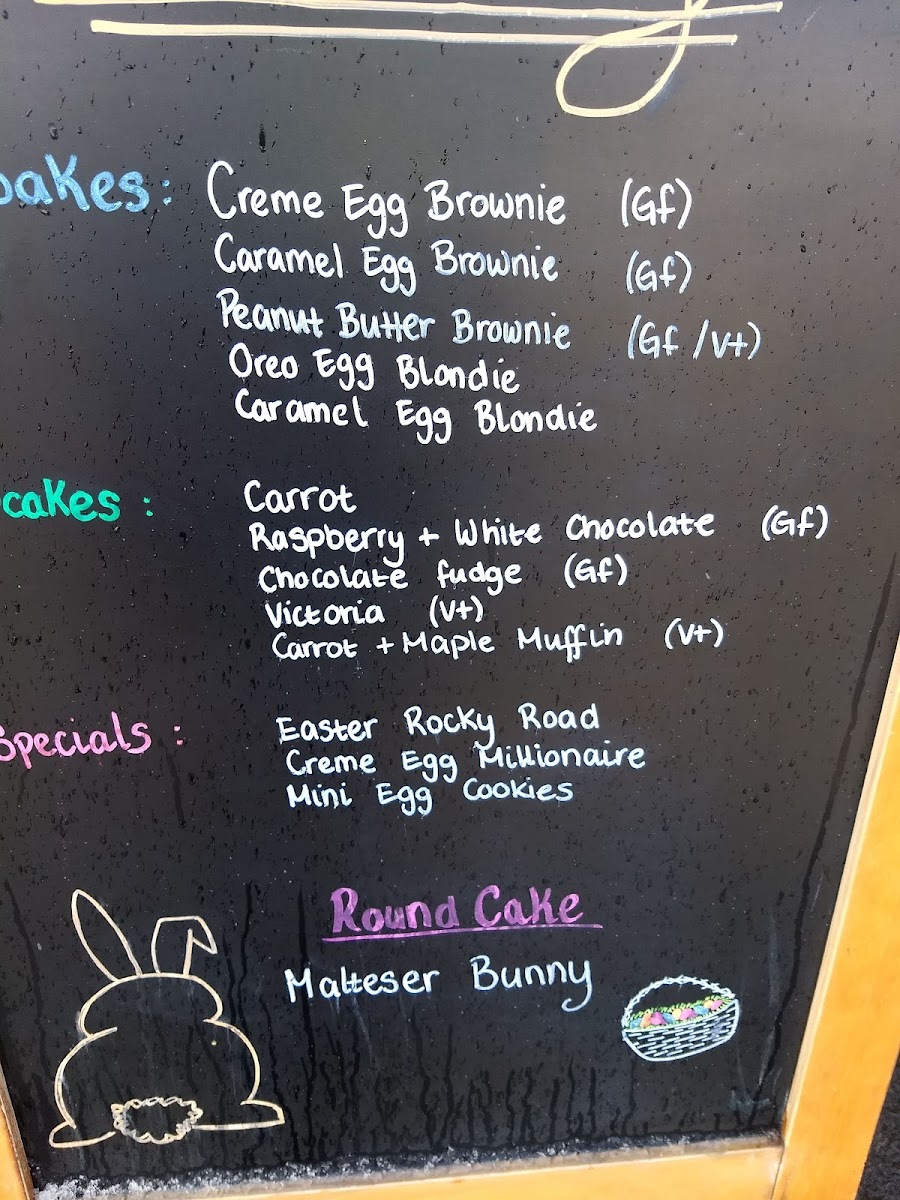 bakes: Creme Egg Brownie (Gf)
Caramel Egg Brownie (Gf)
Peanut Butter Brownie (Gf /V+)
Oreo Egg Blondie
Caramel Egg Blondie
cakes: Carrot
Raspberry + White Chocolate (Gf)
Chocolate fudge (Gf)
Victoria (V+)
Carrot + Maple Muffin (V+)
Specials: Easter Rocky Road
Creme Egg Millionaire
Mini Egg Cookies
Round Cake
Malteser Bunny